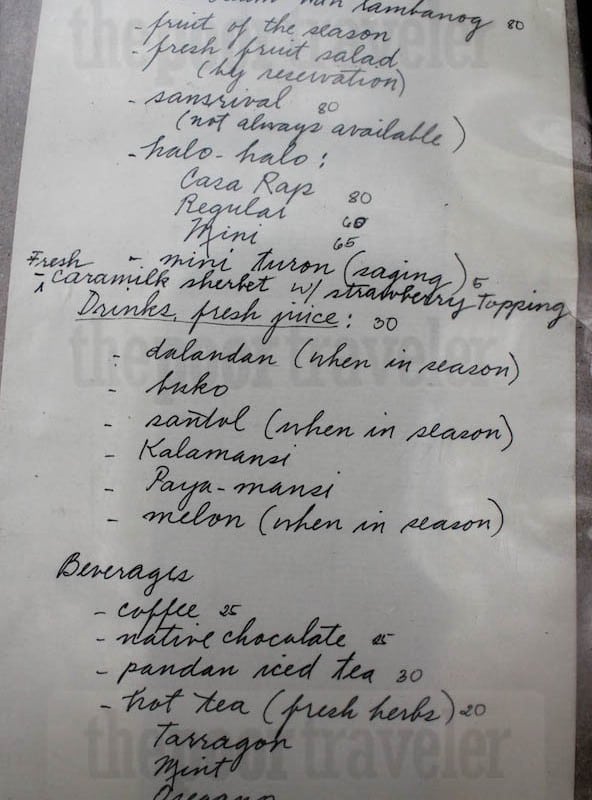 nambanog 80
- fruit of the season
- fresh fruit salad
(by reservation)
- sansrival 80
(not always available)
- halo-halo:
Casa Rap 80
Regular 60
Mini 65
- mini turon (saging) 5
Fresh
- caramilk sherbet w/ strawberry topping
Drinks, fresh juice: 30
- dalandan (when in season)
- buko
- santol (when in season)
- Kalamansi
- Paya-mansi
- melon (when in season)
Beverages
- coffee 25
- native chocolate 25
- pandan iced tea 30
- hot tea (fresh herbs) 20
Tarragon
Mint
Oregano
the poor traveler
the poor traveler
the poor traveler